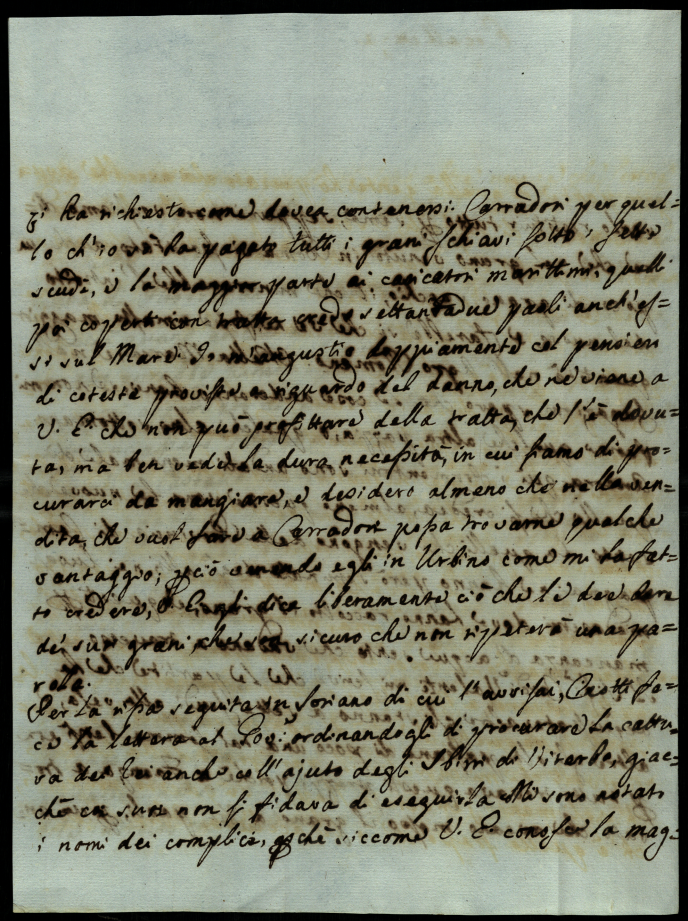 gi ha richiesto come dovea contenersi Carradori per quel=
lo ch'io so ha pagato tutti i grani schiavi sotto i sette
scudi, e la maggior parte ai caricatori marittimi, quelli
poi coperti con tratta credo settantadue paoli anch'es=
si sul Mare. Io m'angustio doppiamente col pensiero
di cotesta provista a riguardo del danno, che ne viene a
V. E. che non può profittare della tratta, che l'è dovu=
ta, ma ben vede la dura necessità, in cui siamo di pro=
curarci da mangiare, e desidero almeno che nella ven=
dita, che vuol fare a Carradori possa trovarne qualche
vantaggio; perciò venendo egli in Urbino come mi ha fat=
to credere, V. E. gli dica liberamente ciò che le dee dare
de' suoi grani, che son sicuro che non ripeterà una pa=
rolla.
Per la rissa seguita in Soriano di cui l'avvisai, Ciotti fe=
ce la lettera al ordinandogli di procurare la cattu=
ra dei rei anche coll'ajuto degli Sbirri di Viterbo, giac=
chè co' suoi non si fidava di eseguirla. Mi sono notato
i nomi dei complici, perchè siccome V. E. conosce la mag=